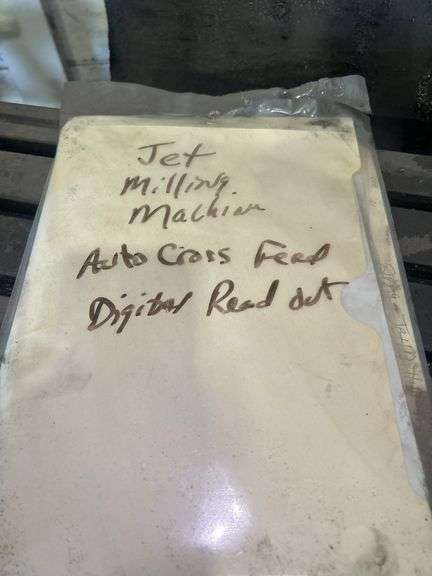 Jet
Milling
Machine
Auto Cross Feed
Digital Read Out